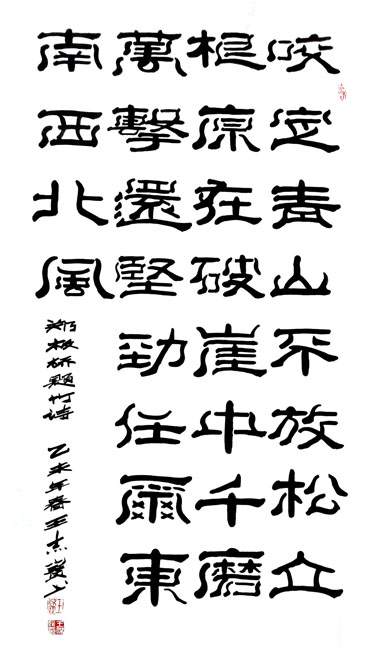 咬定青山不放松立
根原在破崖中千磨
萬擊還堅勁任爾東
南西北風
郑板桥题竹诗 乙未年春王